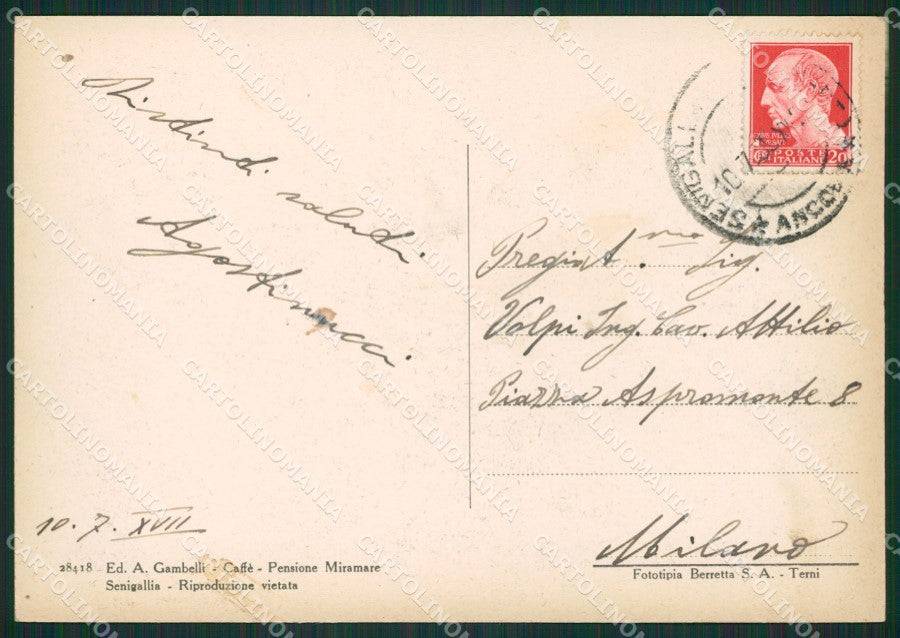 Distinti saluti.
Agostinucci.
10. 7. XVII
28418 Ed. A. Gambelli - Caffè - Pensione Miramare
Senigallia - Riproduzione vietata
POSTE
ITALIANE
20
SENIGALLIA
ANCONA
10.7
Pregiat.mo Sig.
Volpi Ing. Cav. Attilio
Piazza Aspromonte 8
Milano
Fototipia Berretta S. A. - Terni
CARTOLINOMANIA